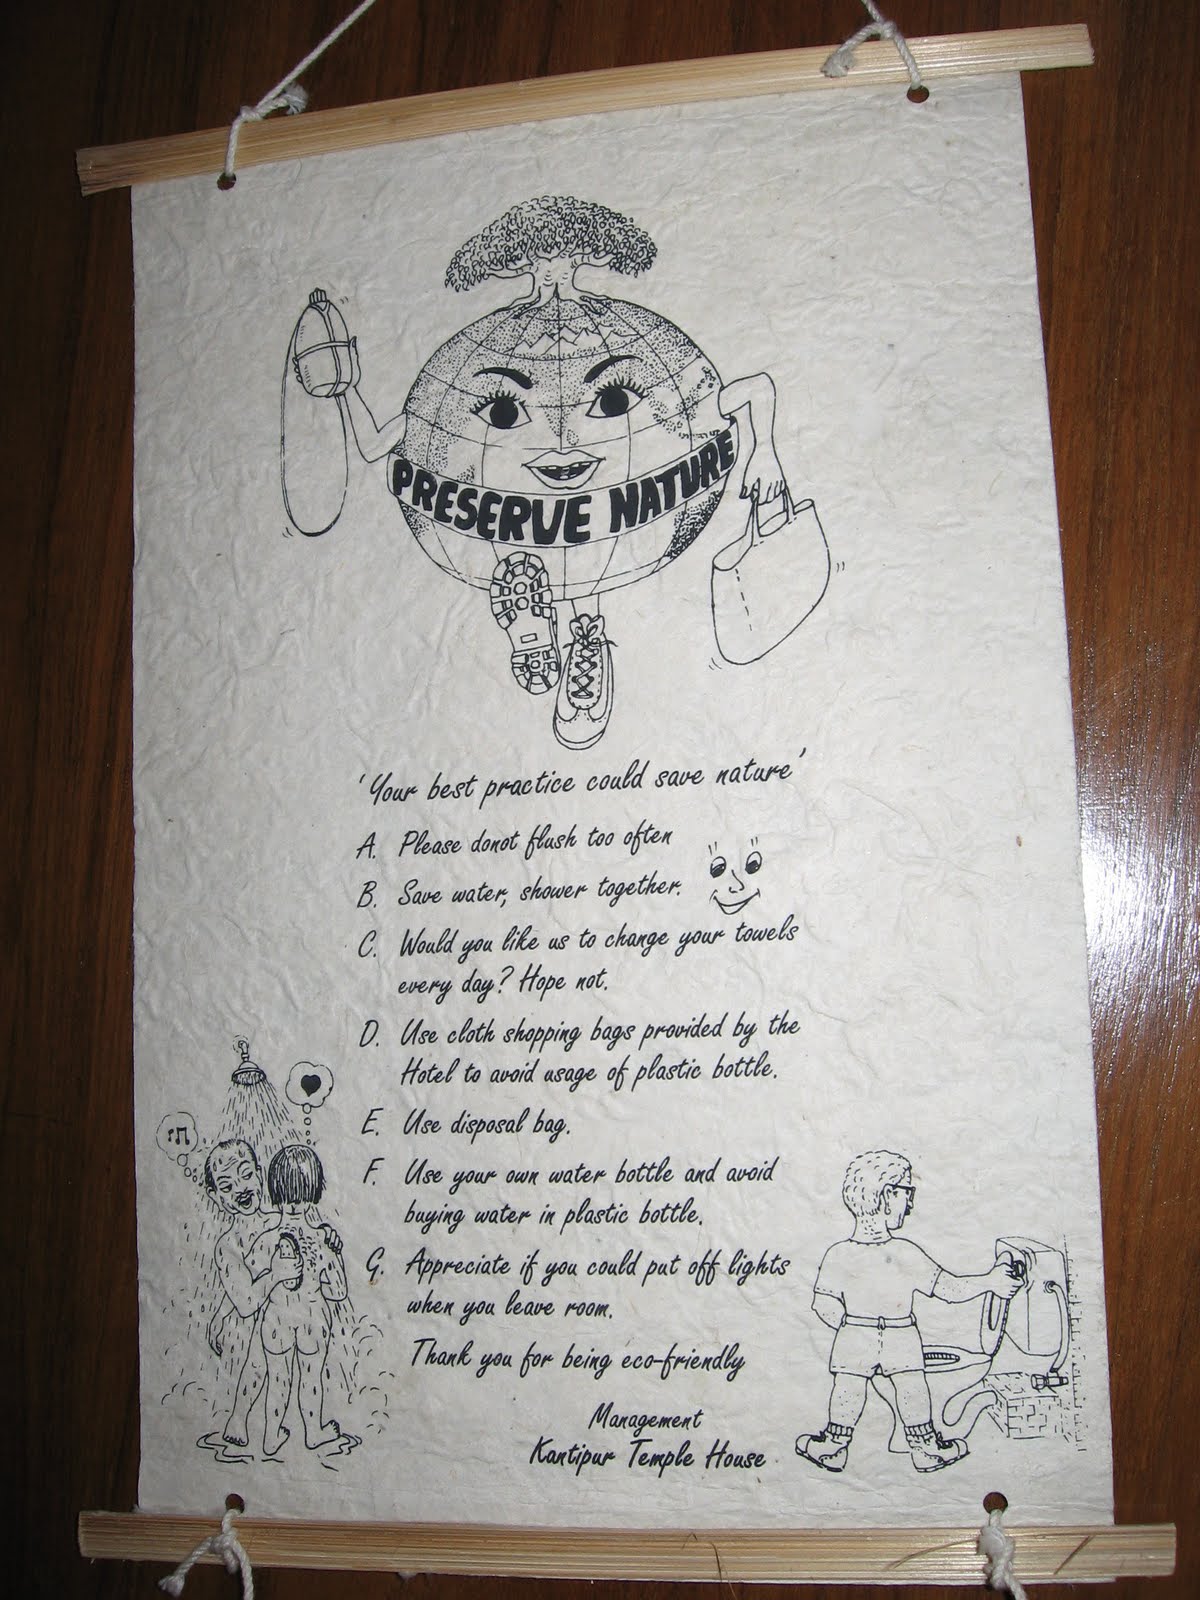 PRESERVE NATURE
'Your best practice could save nature'
A. Please donot flush too often
B. Save water, shower together.
C. Would you like us to change your towels
every day? Hope not.
D. Use cloth shopping bags provided by the
Hotel to avoid usage of plastic bottle.
E. Use disposal bag.
F. Use your own water bottle and avoid
buying water in plastic bottle.
G. Appreciate if you could put off lights
when you leave room.
Thank you for being eco-friendly
Management
Kantipur Temple House